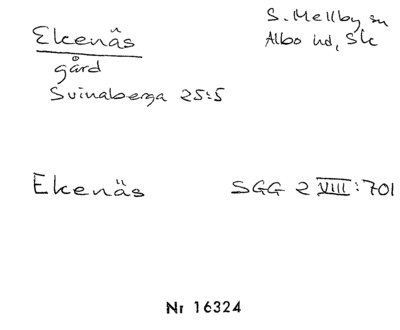 Ekenäs
S. Mellby sn
Albo hd, Sk
gård
Svinaberga 25:5
Ekenäs
SGG 2 VIII:701
Nr 16324